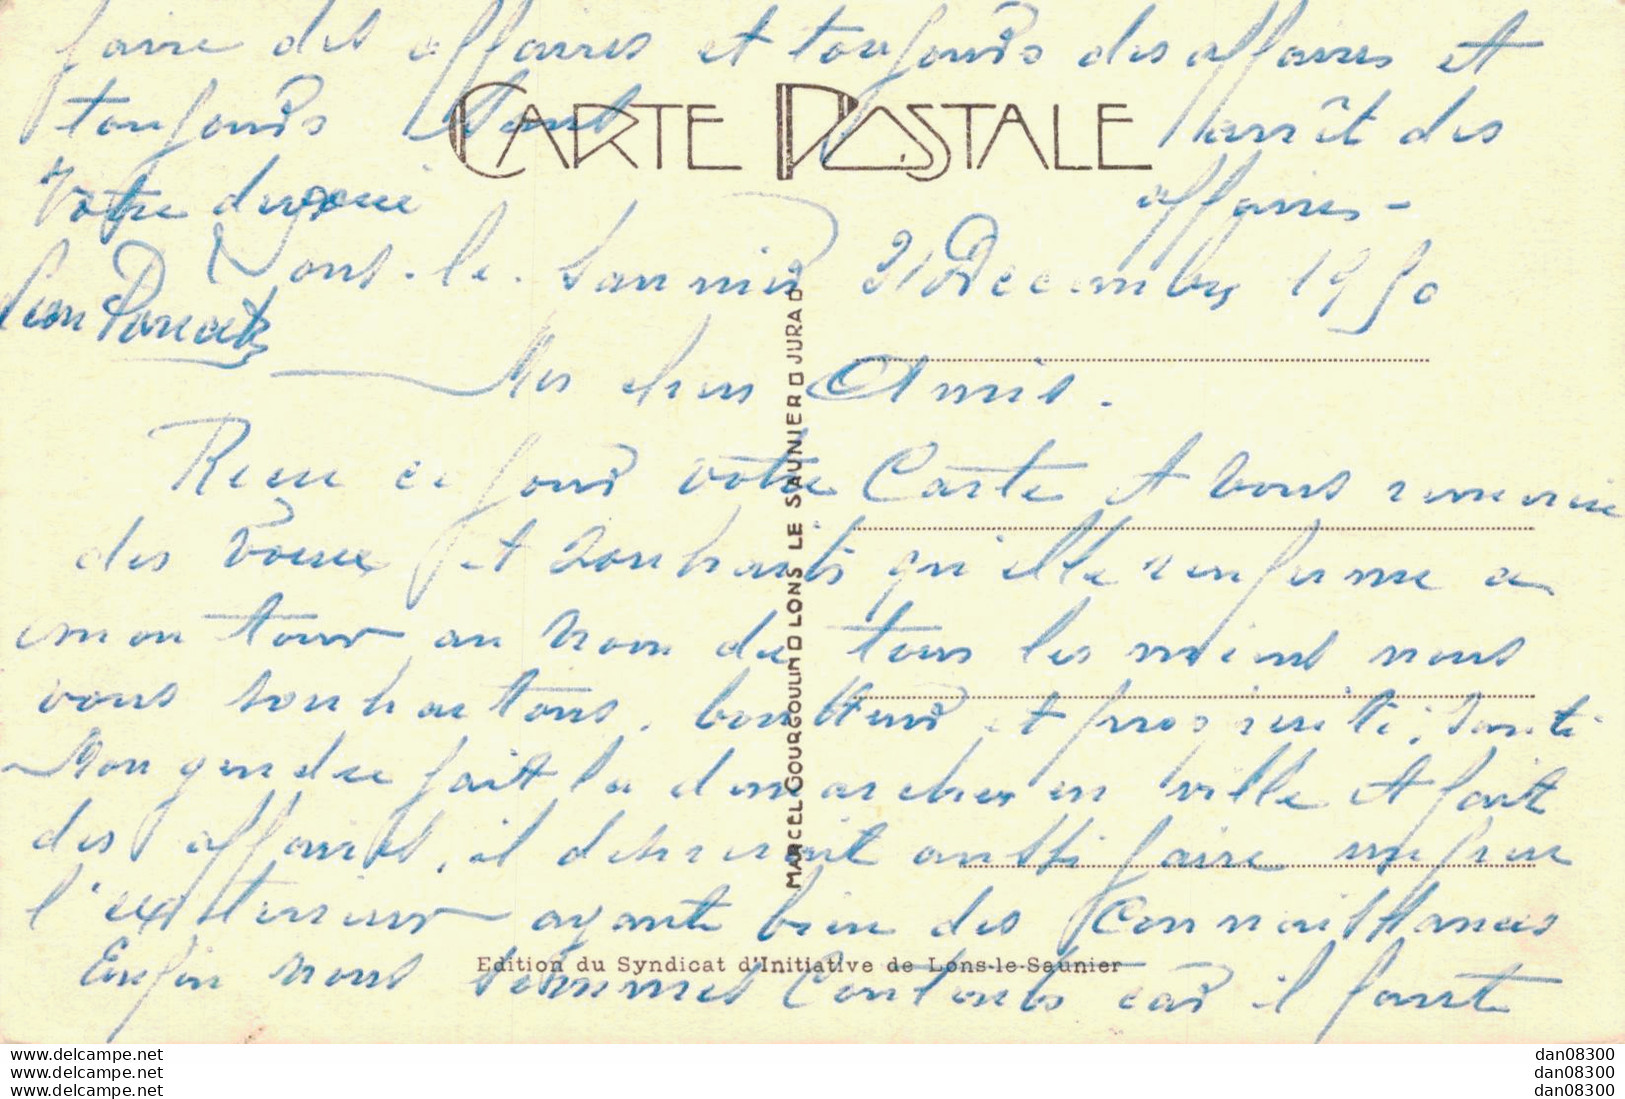 faire des affaires et toujours des affaires et
toujours sans arrêt des
CARTE POSTALE
Votre dévoué
affaires -
Lons-le-Saunier 31 Decembre 1950
Mes chers Amis.
Recu ce jour votre Carte et vous remercie
des voeux et souhaits qu'elle renferme a
mon tour au nom de tous les miens nous
vous souhaitons, bonheur et prosperité, Santé
Mon gendre fait la demarches en ville et fait
des affaires, il desirerait aussi faire un peu
l'exterieur ayant bien des Connaissances
Enfin nous sommes Contents car il faut
MARCEL GOURGOULIN LONS LE SAUNIER JURA
Edition du Syndicat d'Initiative de Lons-le-Saunier
www.delcampe.net
www.delcampe.net
www.delcampe.net
dan08300
dan08300
dan08300